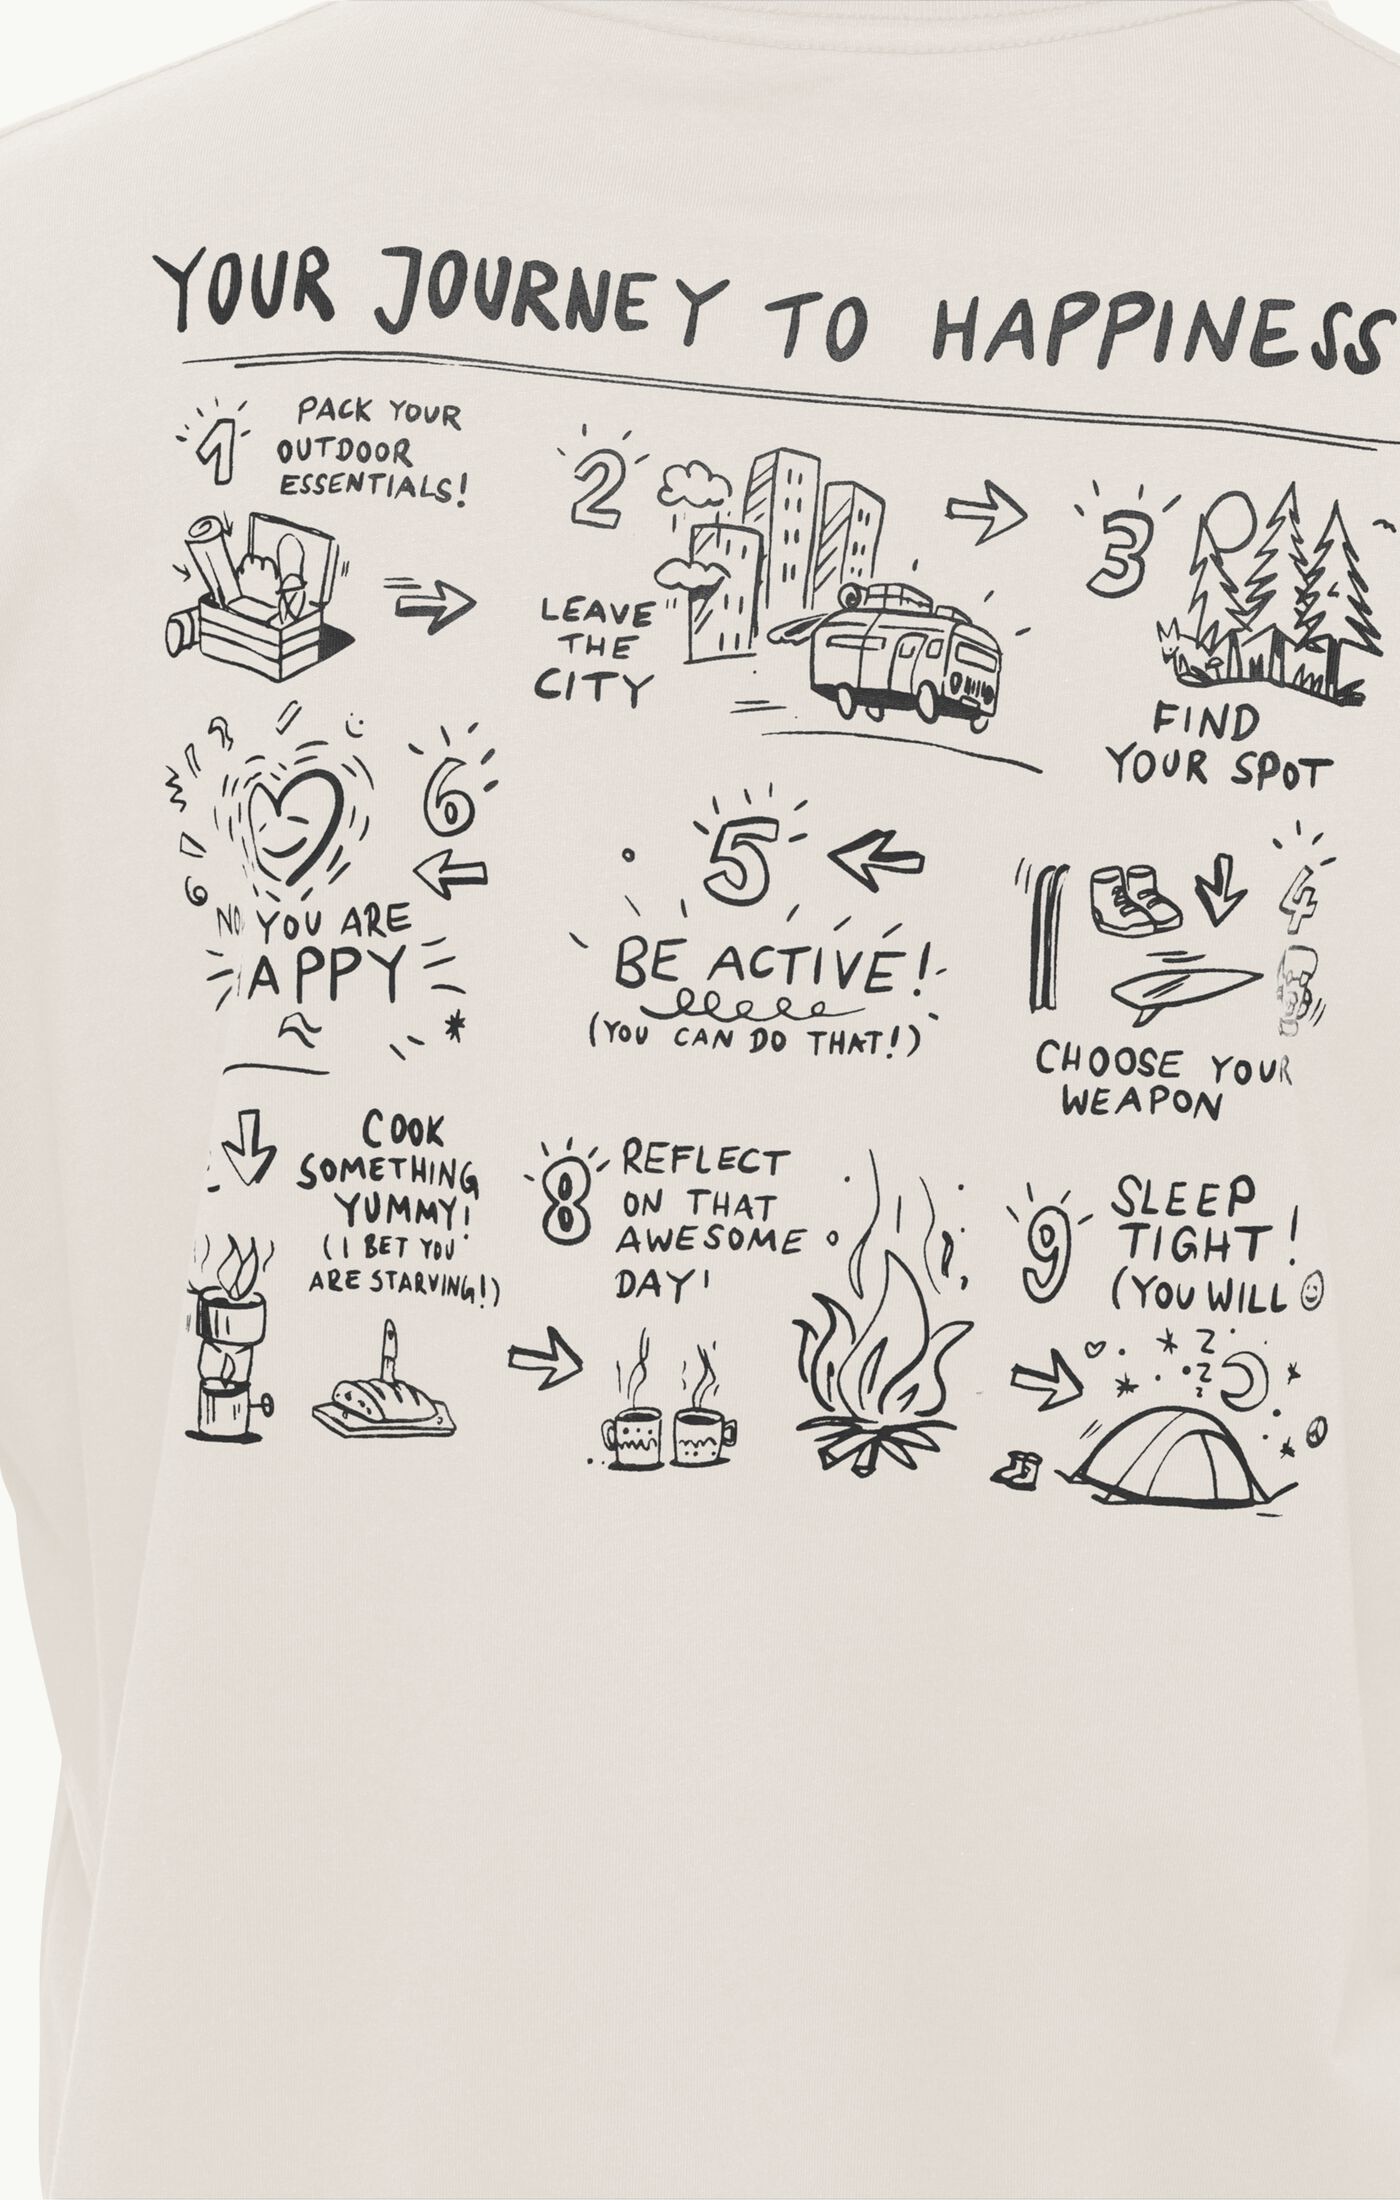 YOUR JOURNEY TO HAPPINESS
1
PACK YOUR
OUTDOOR
ESSENTIALS!
2
LEAVE
THE
CITY
3
FIND
YOUR SPOT
4
CHOOSE YOUR
WEAPON
5
BE ACTIVE!
(YOU CAN DO THAT!)
6
YOU ARE
APPY
COOK
SOMETHING
YUMMY!
(I BET YOU
ARE STARVING!)
8
REFLECT
ON THAT
AWESOME
DAY!
9
SLEEP
TIGHT!
(YOU WILL ☺
Z
Z
Z